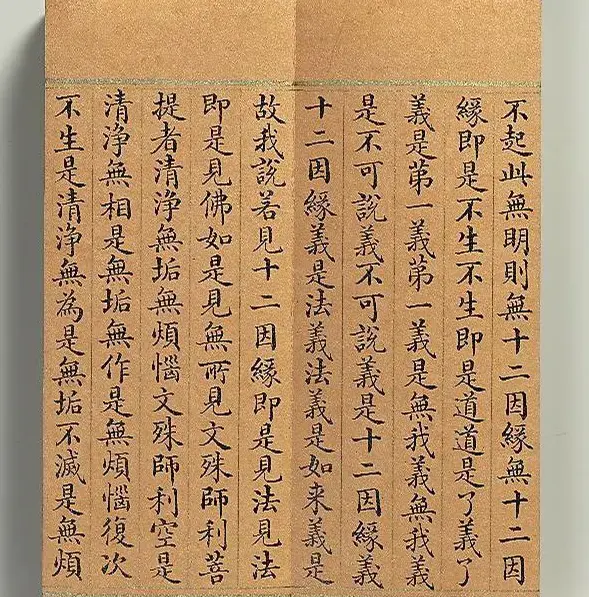 不起此無明則無十二因緣無十二因
緣即是不生不生即是道道是了義了
義是第一義第一義是無我義無我義
是不可說義不可說義是十二因緣義
十二因緣義是法義法義是如来義是
故我說若見十二因緣即是見法見法
即是見佛如是見無所見文殊師利菩
提者清淨無垢無煩惱文殊師利空是
清淨無相是無垢無作是無煩惱復次
不生是清淨無為是無垢不滅是無煩